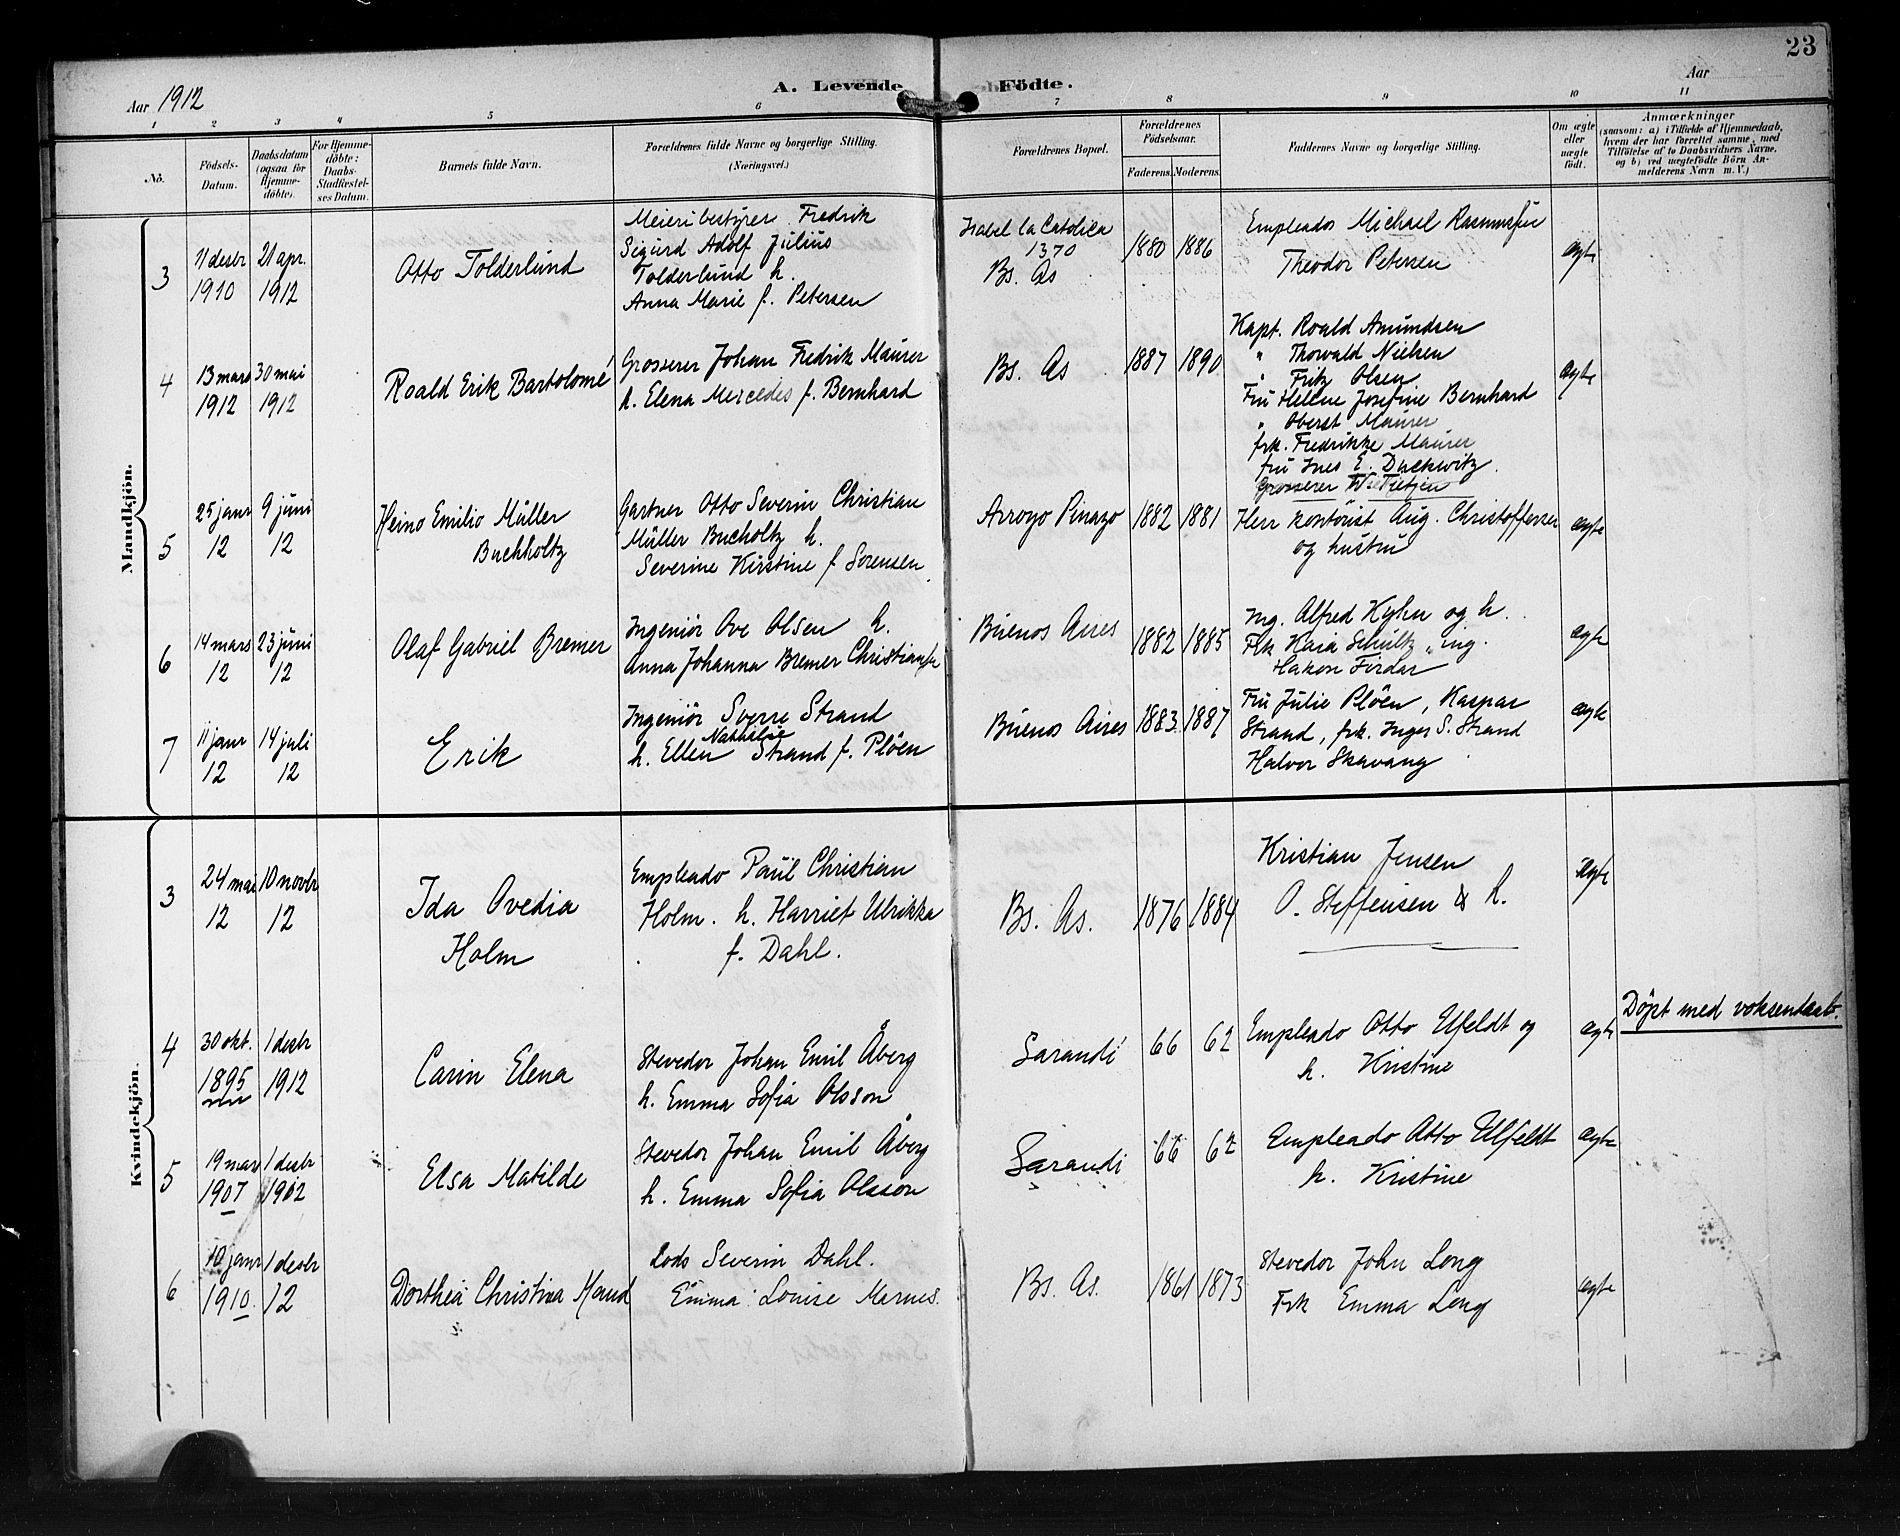 23
Aar 1912
A. Levende Födte.
Aar
1 2 3 4 5 6 7 8 9 10 11
No.
Födsels-
Datum.
Daabsdatum
(ogsaa for
Hjemme-
döbte).
For Hjemme-
döbte:
Daabs-
Stadfæstel-
ses Datum.
Barnets fulde Navn.
Forældrenes fulde Navne og borgerlige Stilling.
(Næringsvei.)
Forældrenes Bopæl.
Forældrenes
Födselsaar.
Faderens. Moderens.
Faddernes Navne og borgerlige Stilling.
Om ægte
eller
uægte
født.
Anmærkninger
(saasom: a) i Tilfælde af Hjemmedaab,
hvem der har forrettet samme, med
Tilföielse af to Daabsvidners Navne,
og b) ved uægtefödte Börn An-
melderens Navn m. V.)
Mandkjön.
3
11 desbr
1910
21 apr.
1912
Otto Tolderlund
Meieribestyrer Fredrik
Sigurd Adolf Julius
Tolderlund h.
Anna Marie f. Petersen
Isabel la Catolica
1370
Bs. As
1880 1886
Empleados Michael Rasmussen
Theodor Petersen
ægte
4
13 mars
1912
30 mai
1912
Roald Erik Bartolomé
Grosserer Johan Fredrik Maurer
h. Elena Mercedes f. Bernhard
Bs. As
1887 1890
Kapt. Roald Amundsen
" Thorvald Nielsen
" Fritz Olsen
Fru Helene Josefine Bernhard
" Oberst Maurer
frk. Fredrikke Maurer
fru Ines E. Duckwitz
Grosserer W. Tietjen
ægte
5
25 janr
12
9 juni
12
Heino Emilio Müller
Buchholtz
Gartner Otto Severin Christian
Müller Bucholtz h.
Severine Kirstine f Sorensen
Arroyo Pinazo
1882 1881
Herr kontorist Aug. Christoffersen
og hustru
ægte
6
14 mars
12
23 juni
12
Olaf Gabriel Bremer
Ingeniör Ove Olsen h.
Anna Johanna Bremer Christiansen
Buenos Aires
1882 1885
Ing. Alfred Kyhn og h.
Frk Kaia Schultz, ing.
Hakon Firdar
ægte
7
11 janr
12
14 juli
12
Erik
Ingeniör Sverre Strand
Nathalie
h. Ellen Strand f. Plöen
Buenos Aires
1883 1887
Fru Julie Plöen, Kaspar
Strand, frk. Inger S. Strand
Halvor Skavang
ægte
Kvindekjön.
3
24 mai
12
10 novbr
12
Ida Ovedia
Holm
Empleado Paul Christian
Holm. h. Harriet Ulrikka
f. Dahl.
Bs. As.
1876 1884
Kristian Jensen
O. Steffensen & h.
ægte
4
30 okt.
1895
1 desbr
1912
Carin Elena
Stevedor Johan Emil Åberg
h. Emma Sofia Olsson
Sarandi
66 62
Empleado Otto Ulfeldt og
h. Kristine
ægte
Döpt med voksendaab.
5
19 mars
1907
1 desbr
1912
Elsa Matilde
Stevedor Johan Emil Åberg
h. Emma Sofia Olsson
Sarandi
66 62
Empleado Otto Ulfeldt
h. Kristine
ægte
6
10 janr
1910.
1 desbr
12
Dorthea Christina Maud
Lods Severin Dahl.
Emma Louise Marnes.
Bs. As.
1861 1873
Stevedor John Long
Frk Emma Long
ægte